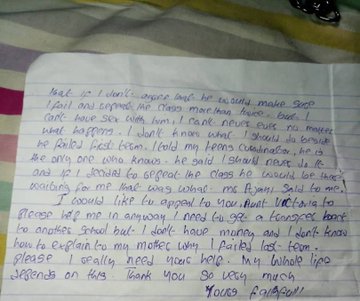 that if I don't agree that he would make sure
I fail and repeat the class more than twice. but I
can't have sex with him, I can't never ever no matter
what happens. I don't know what I should do because
he failed first term. I told my teens Cordinator, he is
the only one who knows. he said I should never do it
and if I decided to repeat the class he would be there
waiting for me that was what ms Ayani said to me.
I would like to appeal to you Aunt Victoria to
please help me in anyway I need to get a transfer back
to another school but I don't have money and I don't know
how to explain to my mother why I failed last term.
please I really need your help. My whole life
depends on this. Thank you so very much
Yours faithfull